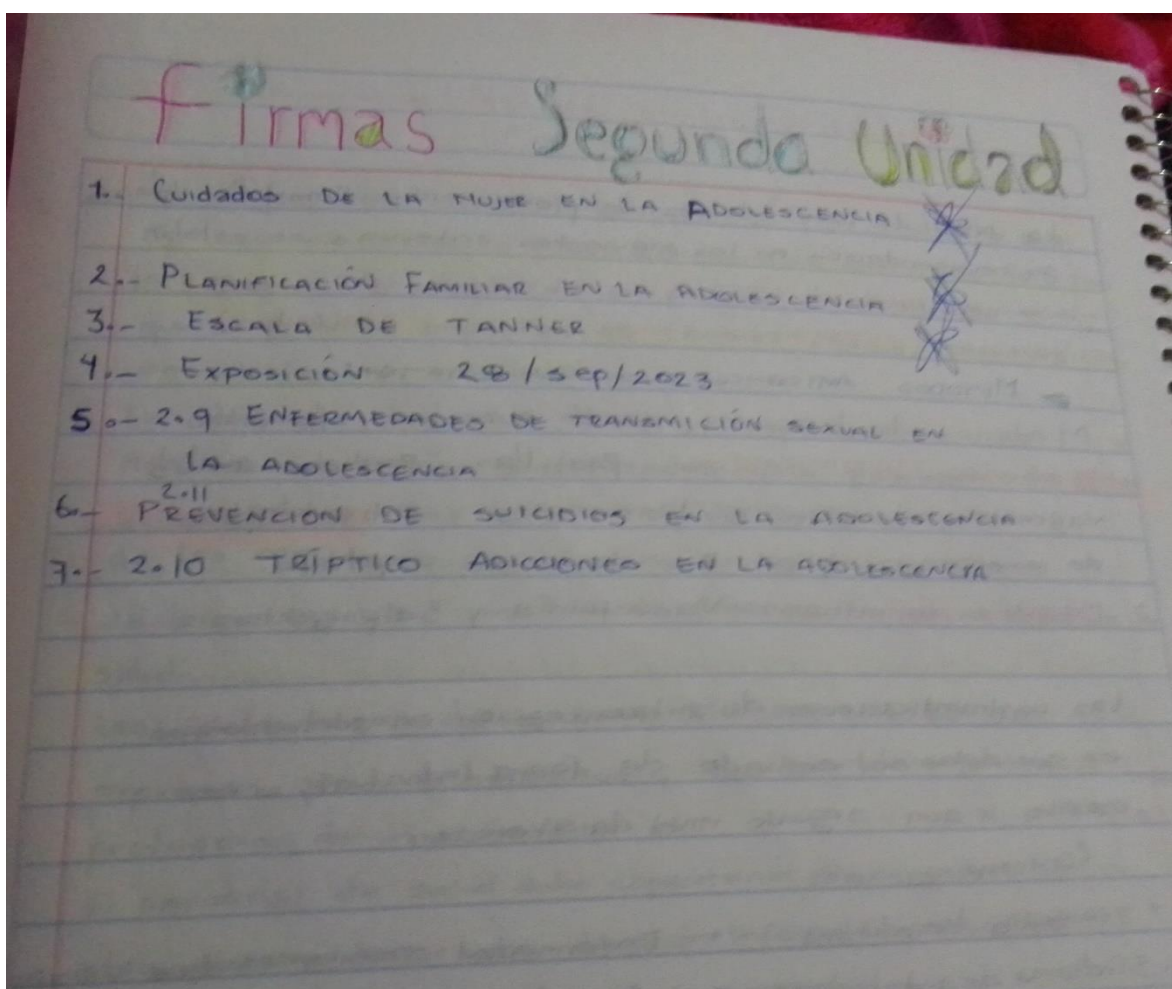 Firmas Segunda Unidad
1.- Cuidados DE LA MUJER EN LA ADOLESCENCIA
2.- PLANIFICACIÓN FAMILIAR EN LA ADOLESCENCIA
3.- ESCALA DE TANNER
4.- EXPOSICIÓN 28/sep/2023
5.- 2.9 ENFERMEDADES DE TRANSMICIÓN SEXUAL EN
LA ADOLESCENCIA
2.11
6.- PREVENCION DE SUICIDIOS EN LA ADOLESCENCIA
7.- 2.10 TRÍPTICO ADICCIONES EN LA ADOLESCENCIA